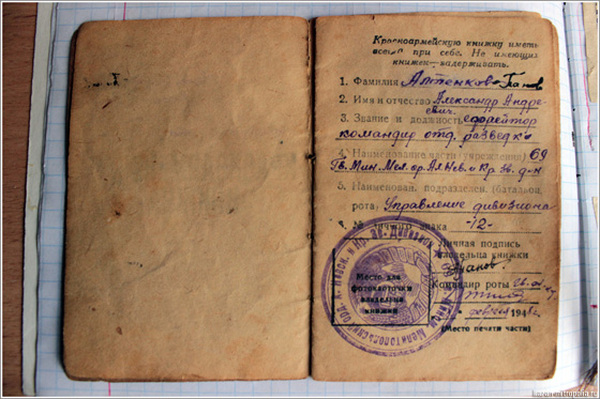 Красноармейскую книжку иметь
всегда при себе. Не имеющих
книжек—задерживать.
1. Фамилия Аптенков-Панов
2. Имя и отчество Александр Андре-
евич.
3. Звание и должность ефрейтор
командир отд. разведки
4. Наименование части (учреждения) 69
Гв. Мин. Мел. ор. Ал. Нев. и Кр. Зв. д-н
5. Наименован. подразделен. (батальон,
рота) Управление дивизиона
6. № личного знака -12-
Личная подпись
владельца книжки
Панов
Место для
фотокарточки
владельца
книжки
Командир роты
194
(Место печати части)